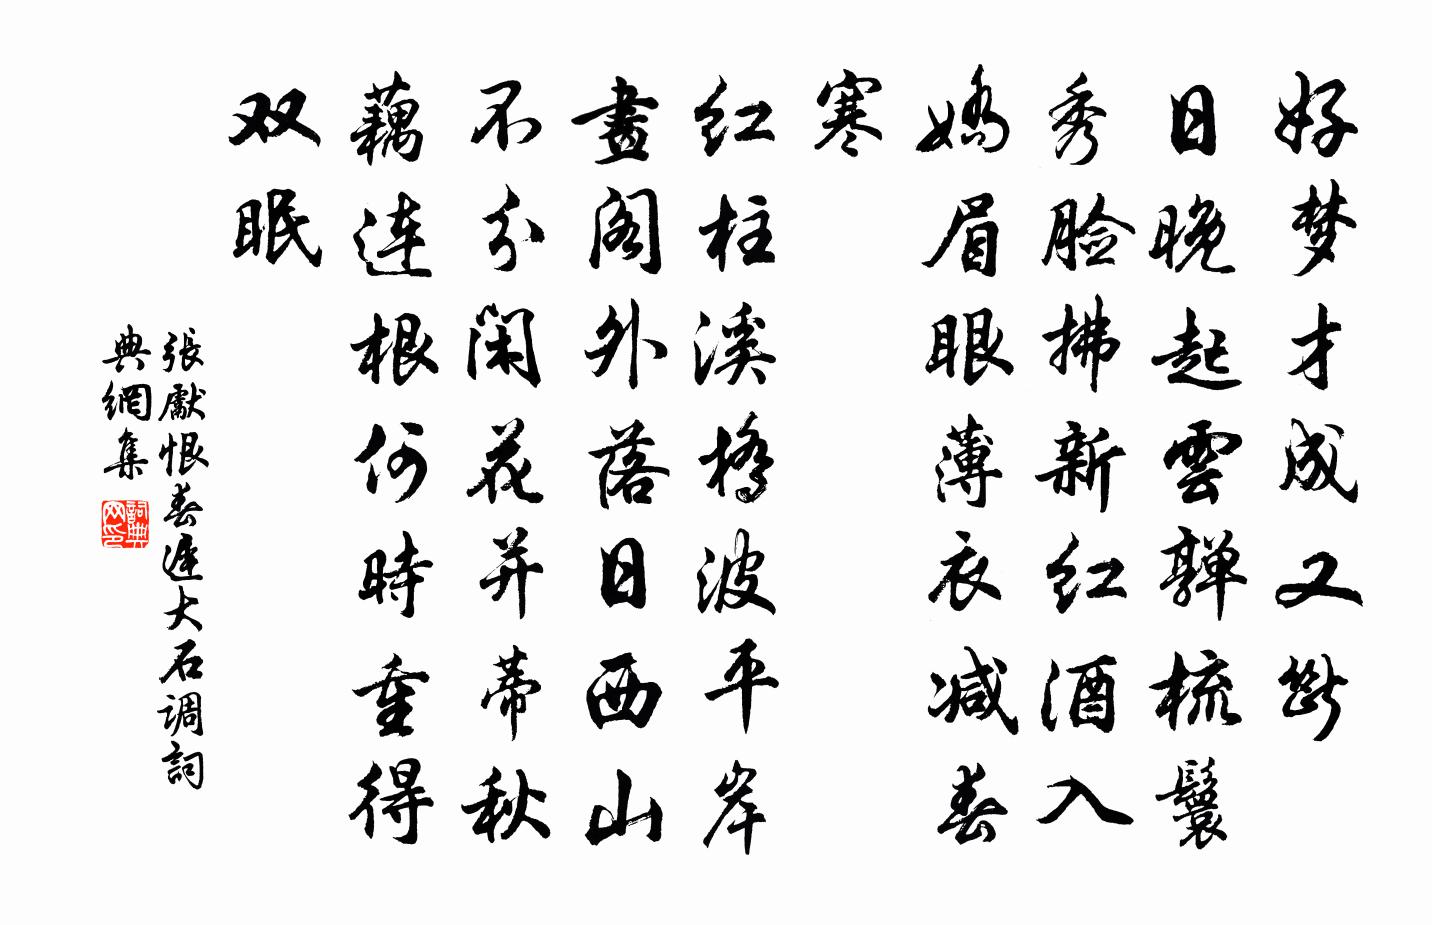 好梦才成又斷
日晚起雲嚲梳鬟
秀脸拂新红酒入
嬌眉眼薄衣减春
寒
红柱溪橋波平岸
畫閣外落日西山
不分閑花并蒂秋
藕連根何時重得
双眠
張獻恨春遲大石调詞
典網集
詞典
网印